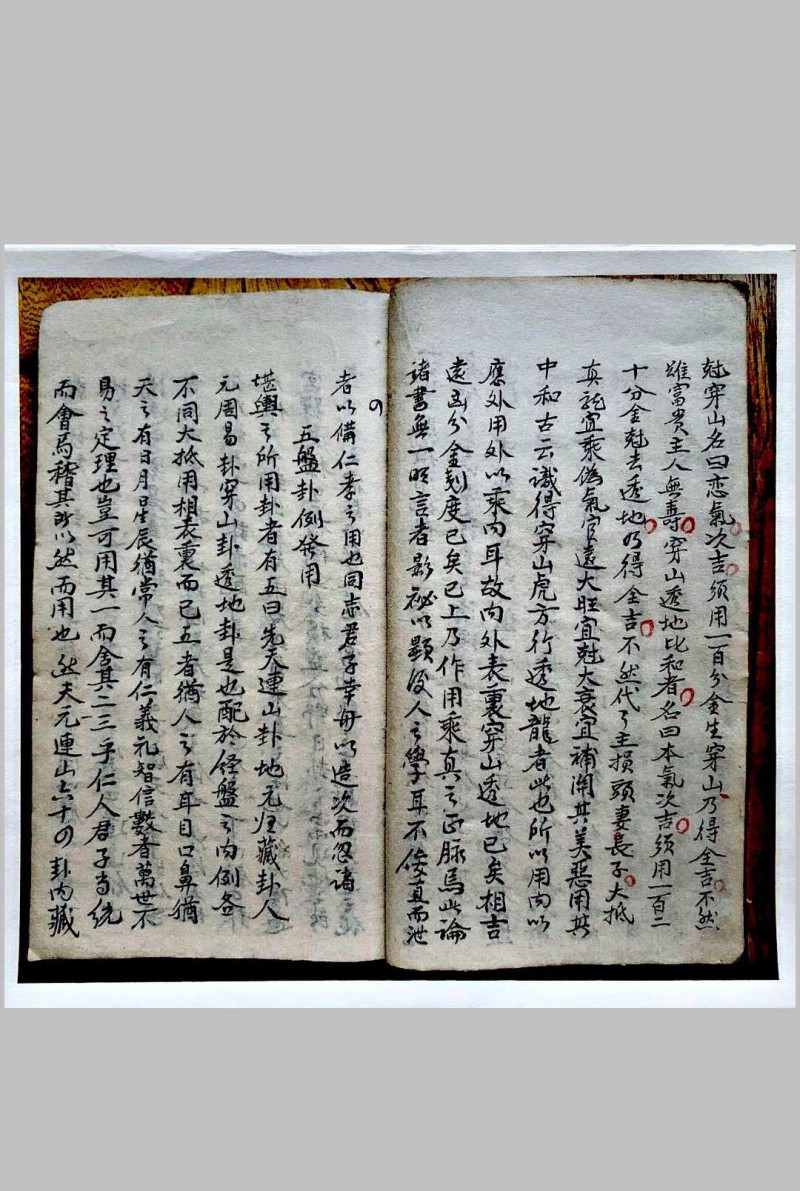 尅穿山名曰恋氣次吉須用一百分金生穿山乃得全吉不然
雖富貴主人無壽穿山透地比和者名曰本氣次吉須用一百二
十分金尅去透地乃得全吉不然代〻主損頭妻長子大抵
真龍宜乘偽氣宜遠大旺宜尅大衰宜補闲其美惡用其
中和古云識得穿山虎方行透地龍者此也所以用内以
應外用外以乘内耳故内外表裏穿山透地已矣相吉
遠凶分金刻度已矣已上乃作用乘真之正脉焉此論
諸書無一明言者影秘以顯後人之學耳不佞直而泄
者以備仁孝之用也同志君子幸毋以造次而忽諸
五盤卦例發用
堪輿之所用卦者有五曰先天連山卦地元归藏卦人
元周易卦穿山卦透地卦是也配於經盤之内例各
不同大抵用相表裏而已五者猶人之有耳目口鼻猶
天之有日月星辰猶常人之有仁義礼智信數者萬世不
易之定理也豈可用其一而舍其二三乎仁人君子當統
而會焉稽其所以然而用也然天元連山六十四卦内藏